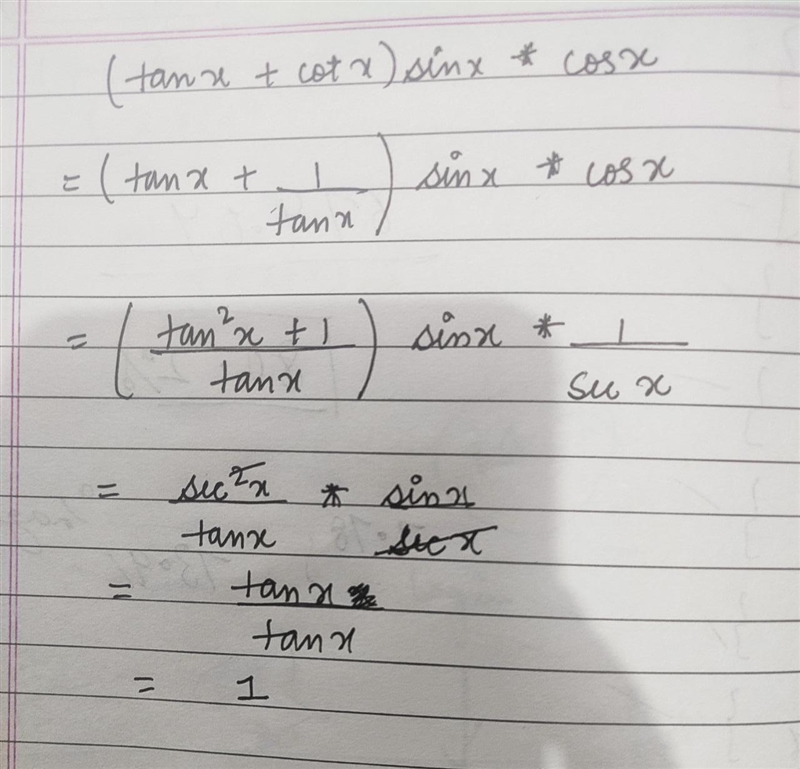 (tan x + cot x) sin x * cos x
= (tan x + 1/tan x) sin x * cos x
= ((tan²x + 1)/tan x) sin x * 1/sec x
= sec²x/tan x * sin x/sec x
= tan x/tan x
= 1